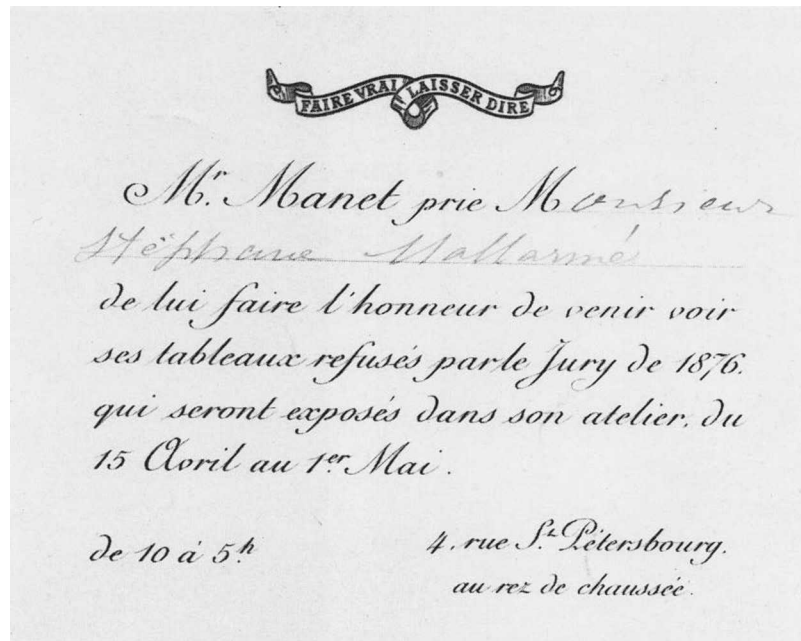 FAIRE VRAI LAISSER DIRE
Mr. Manet prie Monsieur
Stéphane Mallarmé
de lui faire l'honneur de venir voir
ses tableaux refusés par le Jury de 1876.
qui seront exposés dans son atelier, du
15 Avril au 1er. Mai.
de 10 à 5h.
4, rue St. Pétersbourg.
au rez de chaussée.